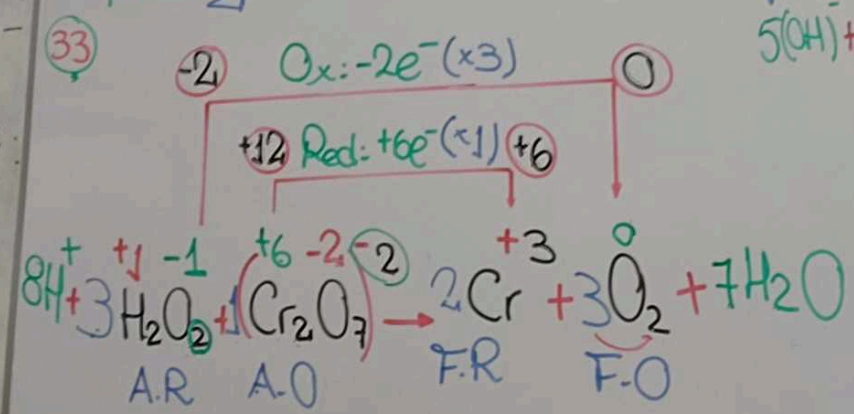 33
5(OH)⁻+
-2 Ox:-2e⁻(x3) 0
+12 Red: +6e⁻(x1) +6
+1 -1 +6 -2 -2 +3 0
8H⁺+3H₂O₂+1(Cr₂O₇) → 2Cr +3O₂ +7H₂O
A.R A.O F.R F-O